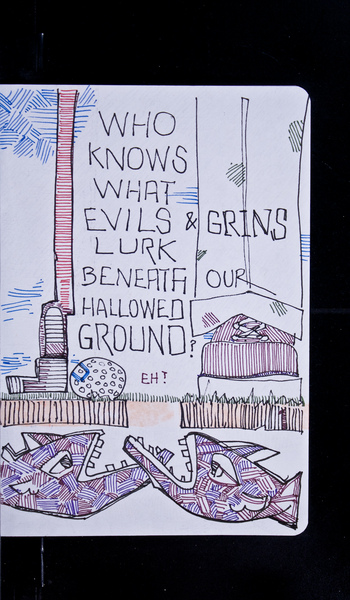 WHO
KNOWS
WHAT
EVILS & GRINS
LURK
BENEATH OUR
HALLOWED
GROUND?
EH?